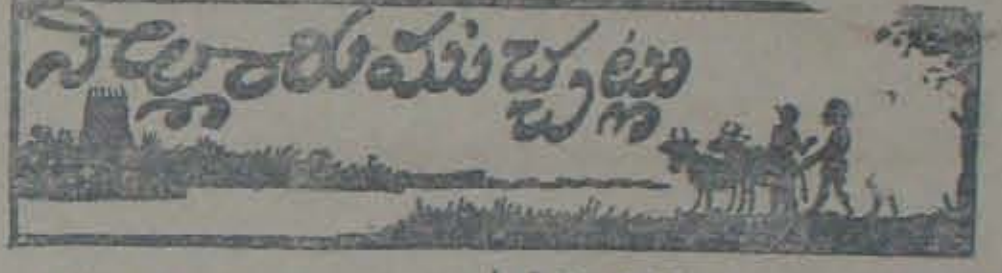 నెల్లూరుముచ్చట్లు